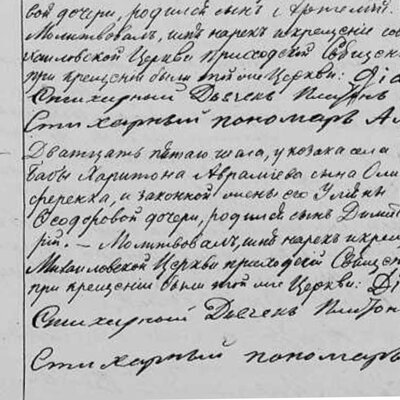 вой дочери, родился сынъ Артемій.
Молитвовалъ, имя нарекъ и крещеніе со
хаиловской Церкви Приходскій Священ
при крещеніи были той же Церкви: Діа
Стихарный Дьячекъ Платонъ
Стихарный пономарь Ал
Дватцать пятаго числа, у козака села
бабы Харитона Авраміева сына Оли
ференка, и законной жены его Ульяны
Ѳеодоровой дочери, родился сынъ Димит
рій. — Молитвовалъ, имя нарекъ и крещ
Михаиловской Церкви приходскій Священ
при крещеніи были той же Церкви: Ді
Стихарный Дьячекъ Платон
Стихарный пономарь